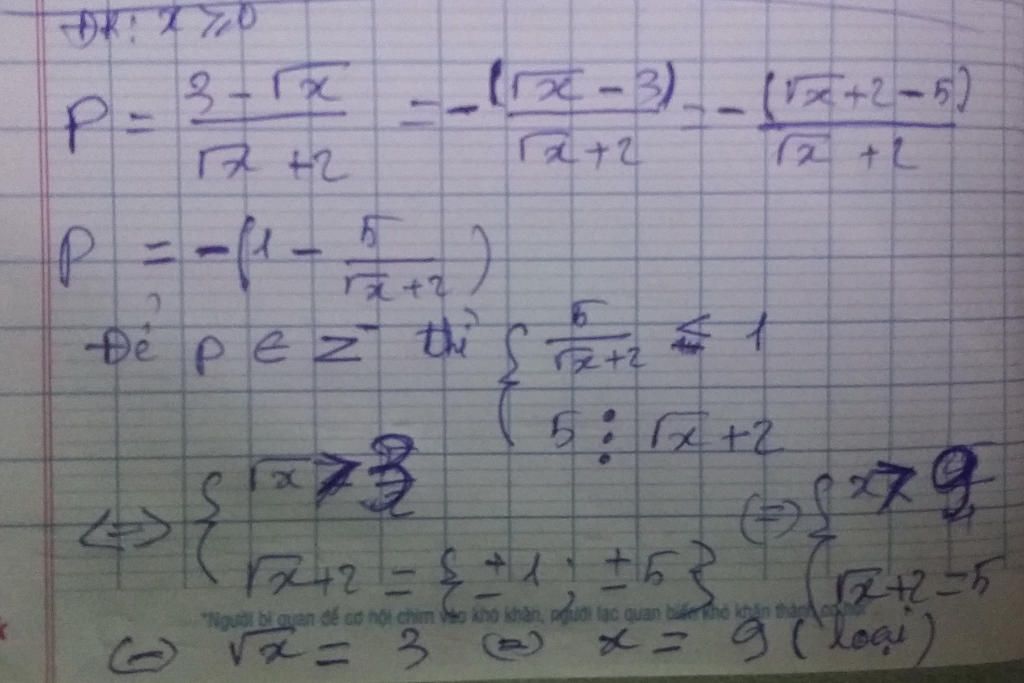 ĐK: x ≥ 0
P = (3 - √x)/(√x + 2) = -(√x - 3)/(√x + 2) = -(√x + 2 - 5)/(√x + 2)
P = -(1 - 5/(√x + 2))
Để P ∈ Z⁻ thì { 5/(√x + 2) < 1
5 ⋮ √x + 2
<=> { √x > 3 (=) { x > 9
√x + 2 = {±1 ; ±5} √x + 2 = 5
"Người bi quan để cơ hội chìm vào khó khăn, người lạc quan biến khó khăn thành cơ hội"
(=) √x = 3 (=) x = 9 (loại)